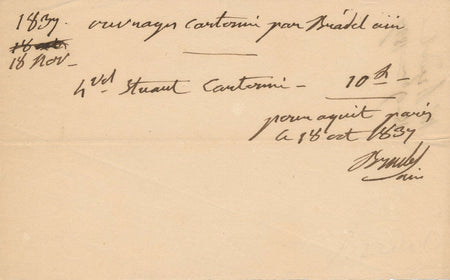 1837. ouvrages Cartonné par Bradel ainé
18 oct
18 Nov -
4 vol Stuart Cartonné - 10 h -
pour aquit paris
ce 18 oct 1837
Bradel
ainé